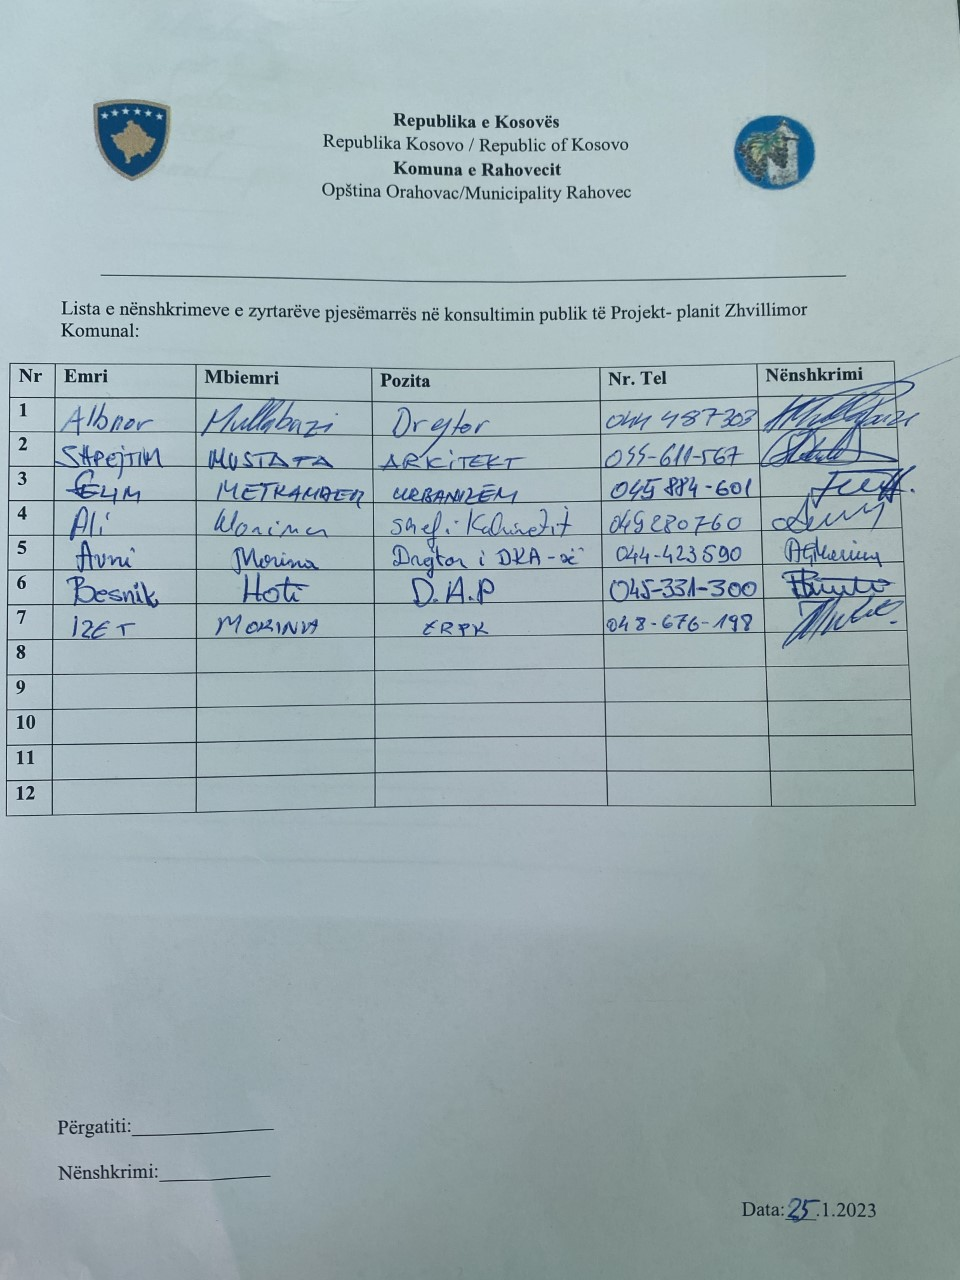 Republika e Kosovës
Republika Kosovo / Republic of Kosovo
Komuna e Rahovecit
Opština Orahovac/Municipality Rahovec
Lista e nënshkrimeve e zyrtarëve pjesëmarrës në konsultimin publik të Projekt- planit Zhvillimor
Komunal:
Nr Emri Mbiemri Pozita Nr. Tel Nënshkrimi
1 Albnor Mullabazi Drejtor 044 487303
2 SHPEJTIM MUSTAFA ARKITEKT 055-611-567
3 URBANIZËM 045 884-601
4 Ali shef i Kabinetit 049280760
5 Avni Morina Drejtor i DKA-së 044-423590
6 Besnik Hoti D.A.P 045-331-300
7 IZET MORINA 048-676-198
8
9
10
11
12
Përgatiti:
Nënshkrimi:
Data: 25.1.2023